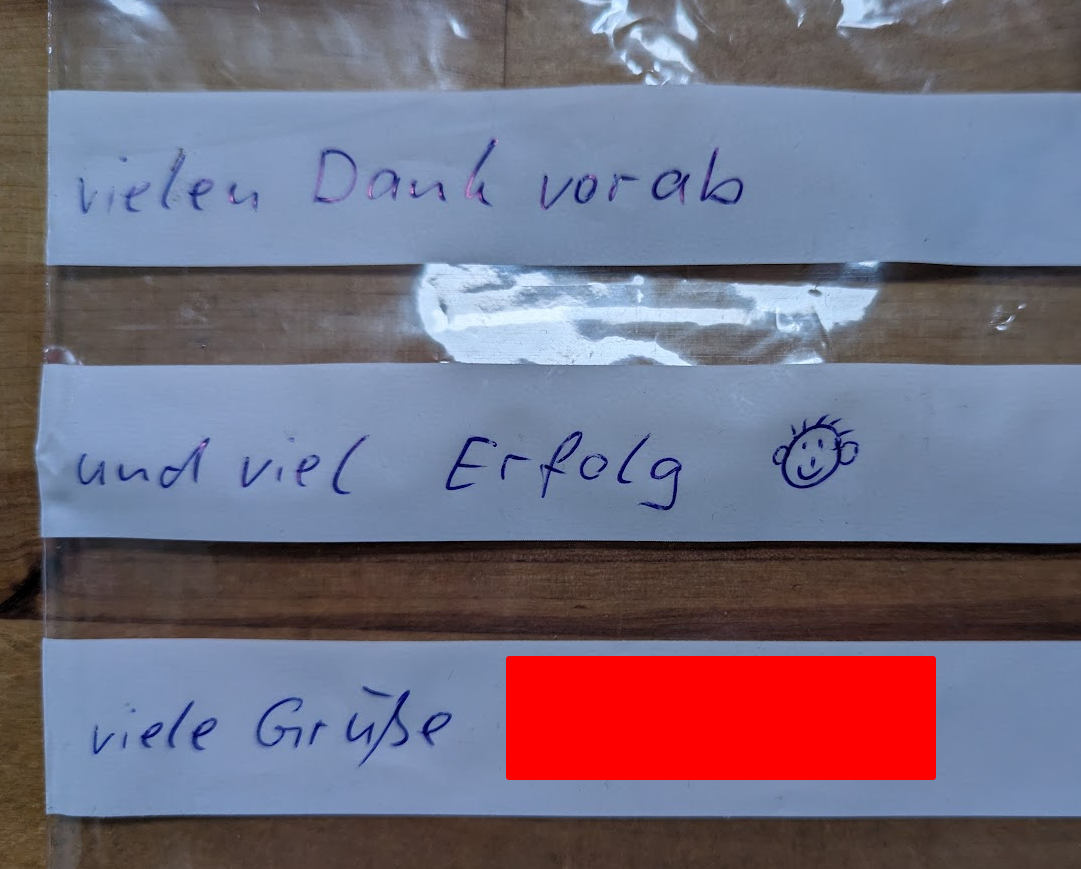 vielen Dank vorab
und viel Erfolg
viele Grüße